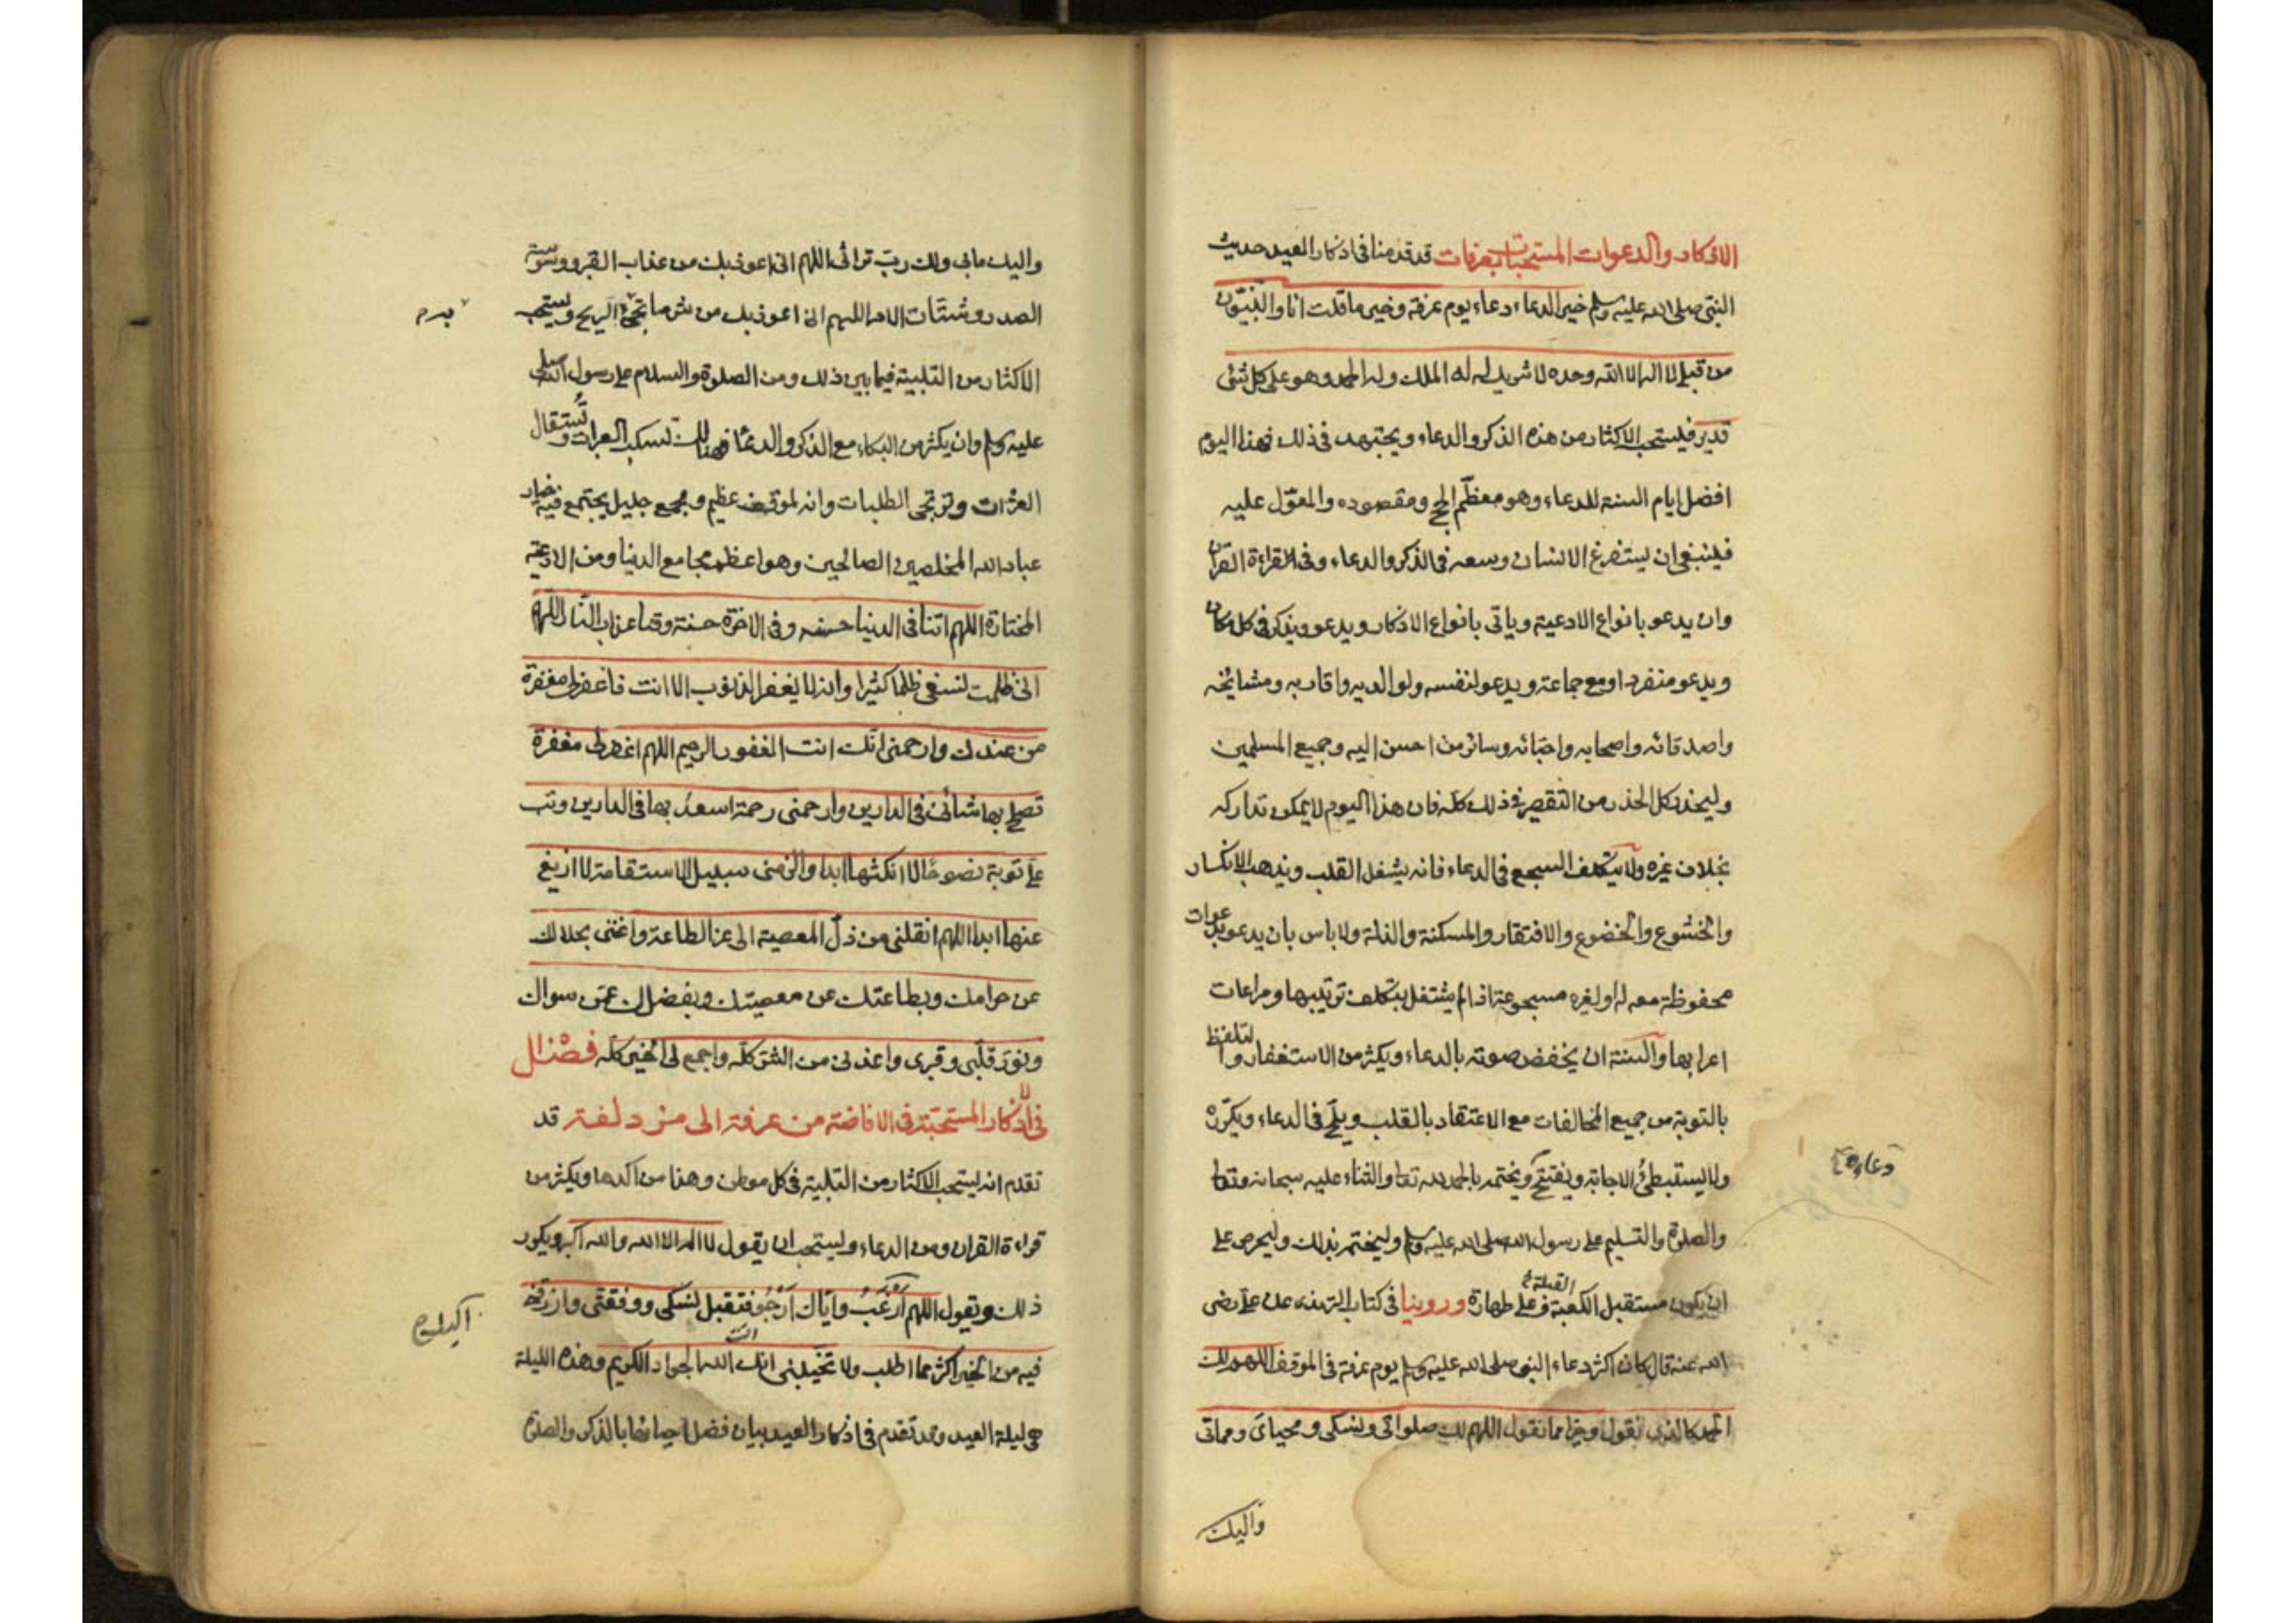 الاذكار والدعوات المستحبات بعرفات قد قدمنا فى اذكار العيد حديث
النبى صلى الله عليه وسلم خير الدعاء دعاء يوم عرفة وخير ما قلت انا والنبيّون
من قبلى لا اله الا الله وحده لا شريك له له الملك وله الحمد وهو على كل شئ
قدير فليستحب الاكثار من هذه الذكر والدعاء ويجتهد فى ذلك فهذا اليوم
افضل ايام السنة للدعاء وهو معظم الحج ومقصوده والمعوّل عليه
فينبغى ان يستفرغ الانسان وسعه فى الذكر والدعاء وفى القراءة القران
وان يدعو بانواع الادعية وياتى بانواع الاذكار ويدعو ويذكر فى كل مكان
ويدعو منفردا ومع جماعة ويدعو لنفسه ولوالديه واقاربه ومشائخه
واصدقائه واصحابه واحبّائه وسائر من احسن اليه وجميع المسلمين
وليحذر كل الحذر من التقصير فى ذلك كله فان هذا اليوم لا يمكن تداركه
بخلاف غيره ولا يتكلف السجع فى الدعاء فانه يشغل القلب ويذهب الانكسار
والخشوع والخضوع والافتقار والمسكنة والذلة ولا باس بان يدعو بدعوات
محفوظة معه له او لغيره مسجوعة اذا لم يشتغل بتكلف ترتيبها ومراعات
اعرابها والسنة ان يخفض صوته بالدعاء ويكثر من الاستغفار والتلفظ
بالتوبة من جميع المخالفات مع الاعتقاد بالقلب ويلحّ فى الدعاء ويكرّره
ولا يستبطئ الاجابة ويفتتح ويختمه بالحمد لله تعا والثناء عليه سبحانه وتعا
دعاءه
والصلوة والتسليم على رسول الله صلى الله عليه وسلم وليختمه بذلك وليحرص على
ان يكون مستقبل الكعبة وعلى طهارة وروينا فى كتاب الترمذى عن على رضى
القبلة
الله عنه قال كان اكثر دعاء النبى صلى الله عليه وسلم يوم عرفة فى الموقف اللهم لك
الحمد كالذى نقول وخيرا مما نقول اللهم لك صلواتى ونسكى ومحياى ومماتى
واليك
واليك مابى ولك رب تراثى اللهم انى اعوذ بك من عذاب القبر ووسوسة
الصدر وشتات الامر اللهم انى اعوذ بك من شر ما تجئ الريح ويستحب
به م
الاكثار من التلبية فيما بين ذلك ومن الصلوة والسلام على رسول الله صلى
عليه وسلم وان يكثر من البكاء مع الذكر والدعاء فهنالك تسكب العبرات وتستقال
العثرات وترتجى الطلبات وانه لموقف عظيم ومجمع جليل يجتمع فيه خيار
عباد الله المخلصين الصالحين وهو اعظم مجامع الدنيا ومن الادعية
المختارة اللهم اتنا فى الدنيا حسنه وفى الاخرة حسنة وقنا عذاب النار اللهم
انى ظلمت نفسى ظلما كثيرا وانه لا يغفر الذنوب الا انت فاغفر لى مغفرة
من عندك وارحمنى انك انت الغفور الرحيم اللهم اغفر لى مغفرة
تصلح بها شانى فى الدارين وارحمنى رحمة اسعد بها فى الدارين وتب
على توبة نصوحا لا انكثها ابدا والزمنى سبيل الاستقامة لا ازيغ
عنها ابدا اللهم انقلنى من ذل المعصية الى عز الطاعة واغننى بحلالك
عن حرامك وبطاعتك عن معصيتك وبفضلك عمن سواك
ونور قلبى وقبرى واعذنى من الشر كله واجمع لى الخير كله فصل
فى الاذكار المستحبة فى الافاضة من عرفة الى مزدلفة قد
تقدم انه يستحب الاكثار من التلبية فى كل موطن وهذا من اكدها ويكثر من
قراءة القران ومن الدعاء ويستحب ان يقول لا اله الا الله والله اكبر ويكرر
ذلك ويقول اللهم ارغب واياك ارجو فتقبل نسكى ووفقنى وارزقنى
اليك
فيه من الخير اكثر مما اطلب ولا تخيبنى انك انت الله الجواد الكريم وهذه الليلة
هى ليلة العيد وقد تقدم فى اذكار العيد بيان فضل احيائها بالذكر والصلوة